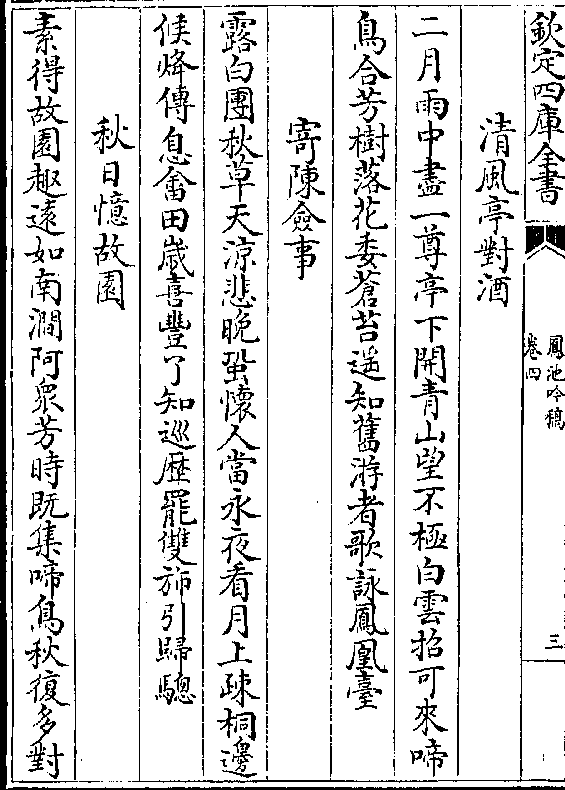 欽定四庫全書
鳳池吟稿
卷四
三
清風亭對酒
二月雨中盡一尊亭下開青山望不極白雲招可來啼
鳥合芳樹落花委蒼苔遥知舊游者歌詠鳳凰臺
寄陳僉事
露白團秋草天涼悲晚蛩懷人當永夜看月上疎桐邊
候烽傳息畬田嵗喜豐了知巡歴罷雙斾引歸驄
秋日憶故園
素得故園趣逺如南澗阿衆芳時既集啼鳥秋復多對